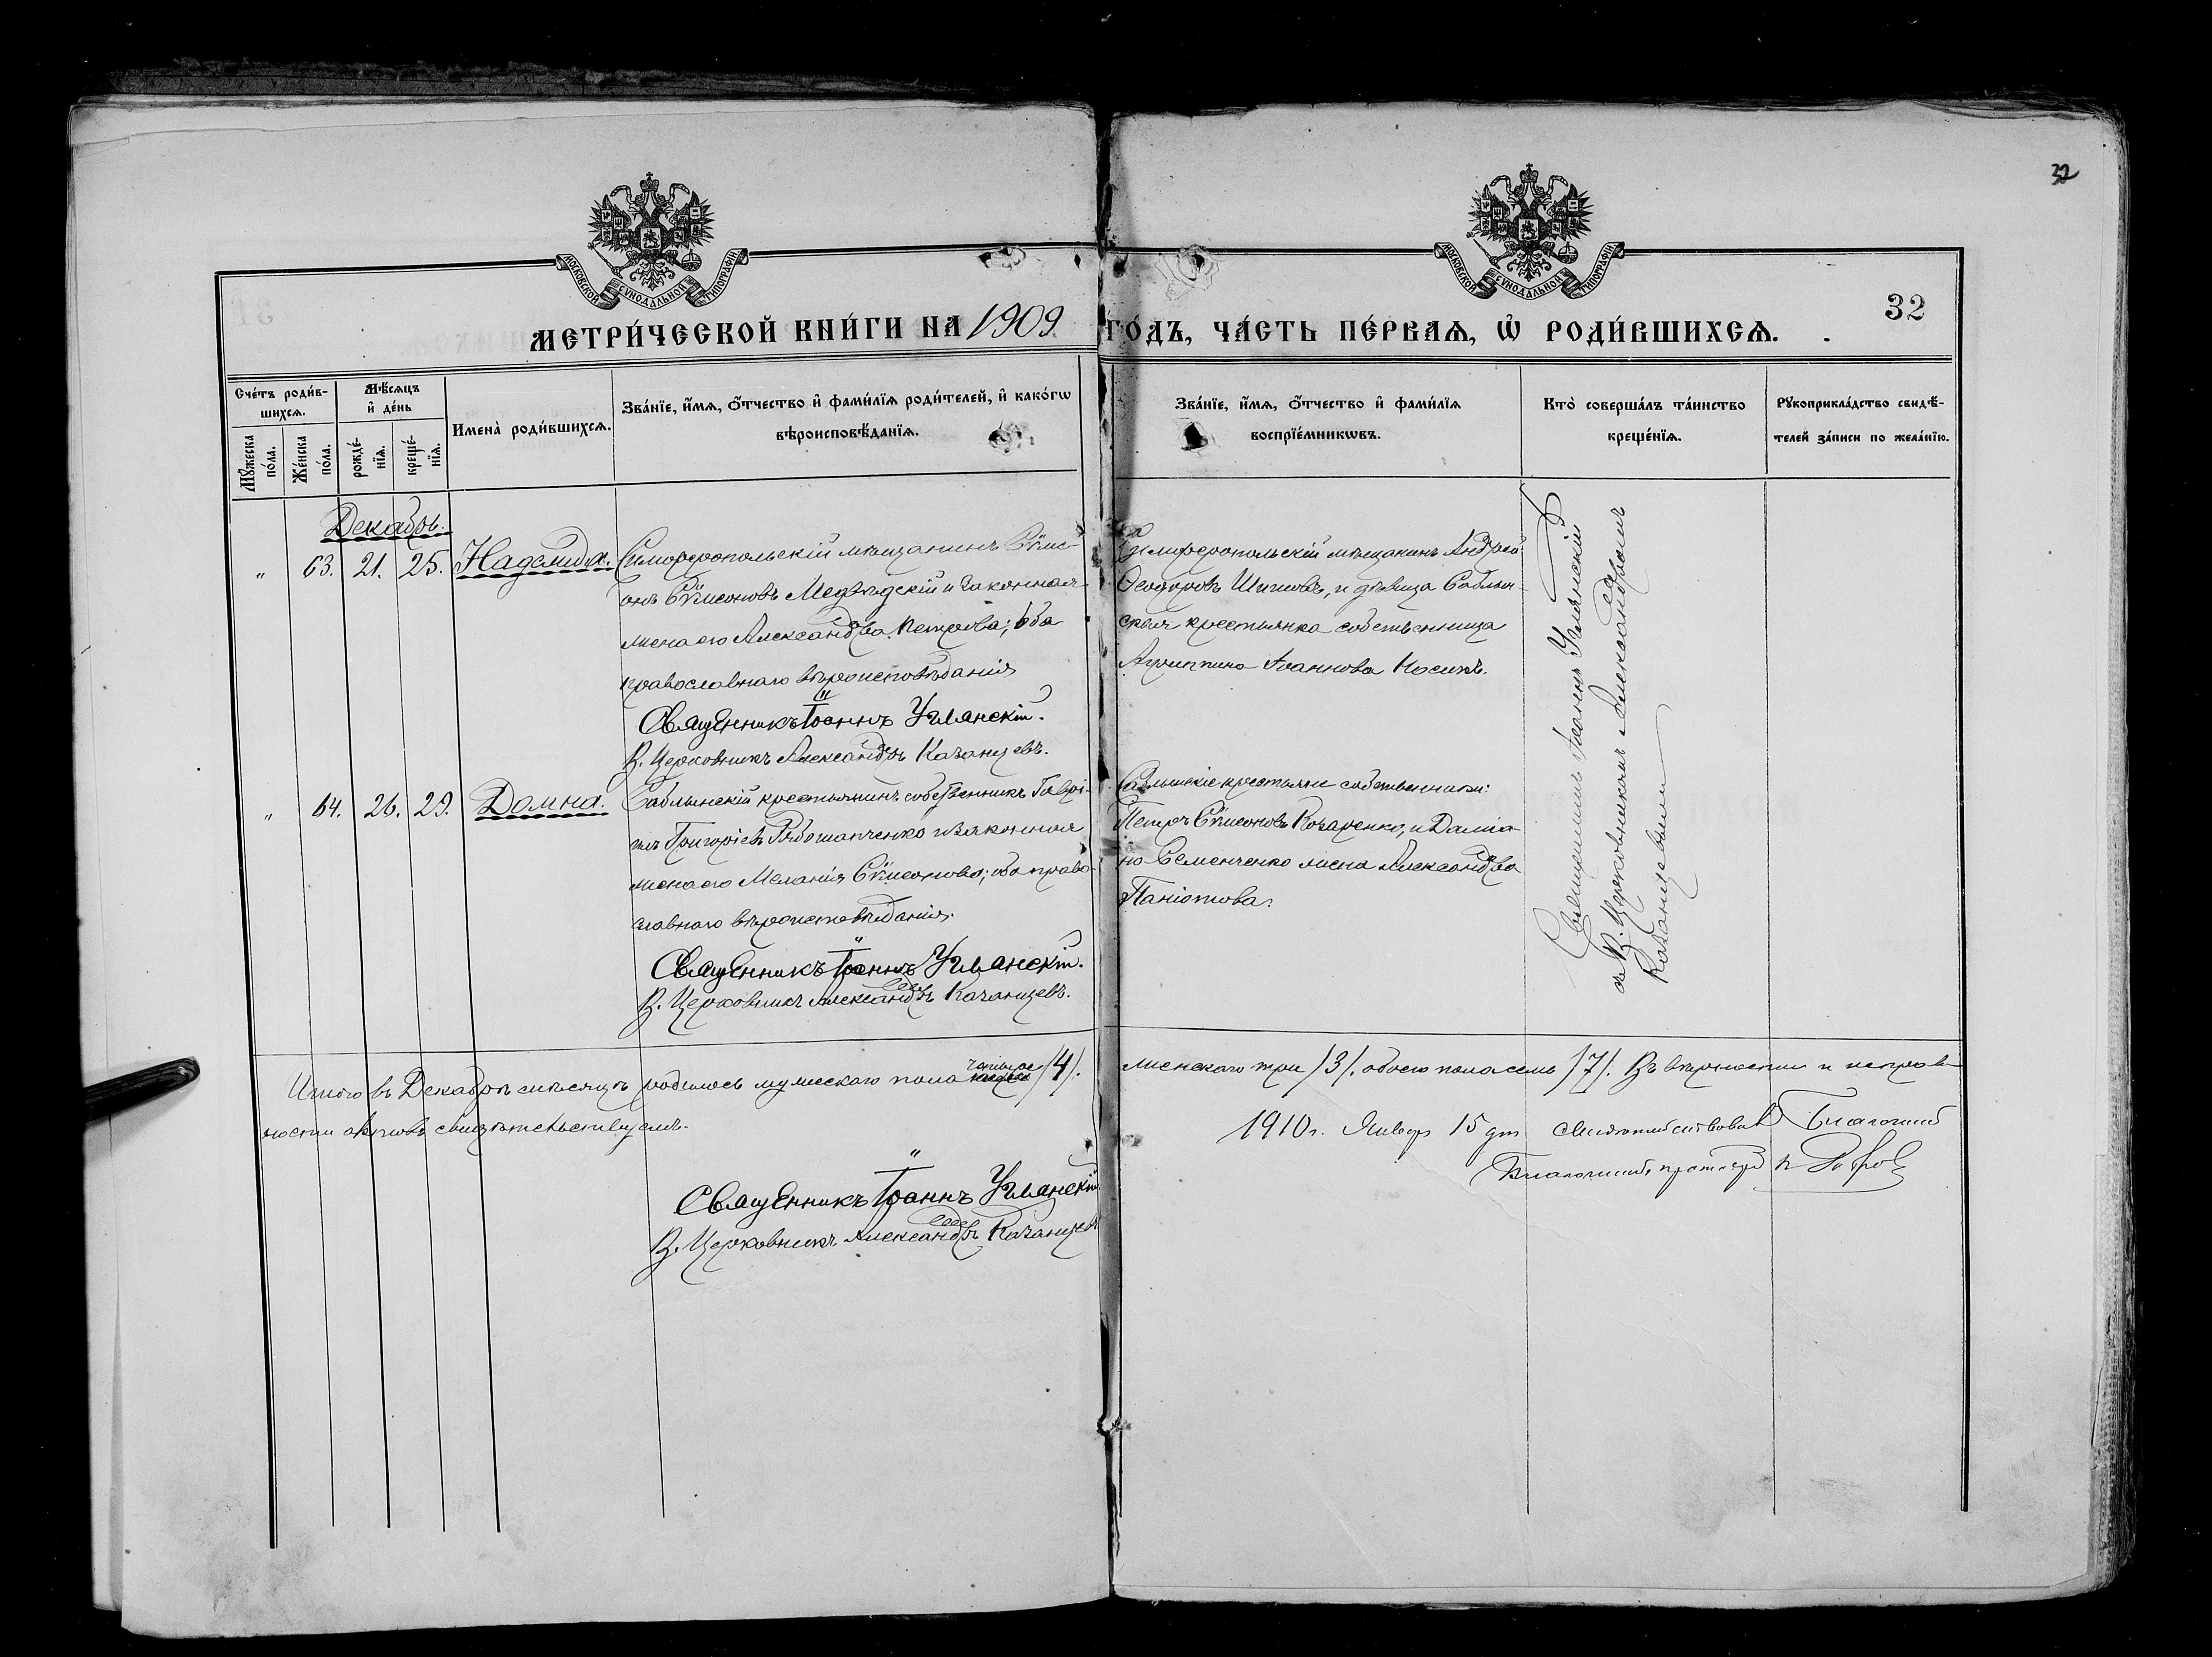 32
МОСКОВСКОЙ СѴНОДАЛЬНОЙ ТИПОГРАФІИ
МОСКОВСКОЙ СѴНОДАЛЬНОЙ ТИПОГРАФІИ
32
МЕТРИ́ЧЕСКОЙ КНИ́ГИ НА 1909 ГО́ДЪ, ЧА́СТЬ ПЕ́РВАѦ, Ѽ РОДИ́ВШИХСѦ.
Сче́тъ роди́в-
шихсѧ.
Мѣ́сѧцъ
и҆ де́нь
Мꙋ́жеска по́ла.
Же́нска по́ла.
рожде́-
нїѧ.
креще́-
нїѧ.
Имена̀ роди́вшихсѧ.
Зва́нїе, и҆́мѧ, ѻ҆́тчество и҆ фами́лїѧ роди́телей, и҆ како́гѡ
вѣроисповѣ́данїѧ.
Зва́нїе, и҆́мѧ, ѻ҆́тчество и҆ фами́лїѧ
воспрїе́мникѡвъ.
Кто̀ соверша́лъ та́инство
креще́нїѧ.
Рꙋкоприкла́дство свидѣ́-
телей за́писи по жела́нїю.
Декабрь.
" 63. 21. 25. Надежда. Симферопольскій мѣщанинъ Сѵме-
онъ Сѵмеоновъ Медвѣдскій и законная
жена его Александра Петрова; оба
православнаго вѣроисповѣданія
Священникъ Іоаннъ Углянскій.
В. Церковникъ Александръ Казанцевъ.
Симферопольскій мѣщанинъ Андрей
Ѳеодоровъ Шишовъ, и дѣвица Саблын-
ская крестьянка собственница
Агриппина Іоаннова Носикъ.
Священникъ Іоаннъ Углянскій
съ В. Церковникомъ Александромъ
Казанцевымъ
" 64. 26. 29. Домна. Саблынскій крестьянинъ собственникъ Гаврі-
илъ Григоріевъ и законная
жена его Меланія Сѵмеонова; оба право-
славнаго вѣроисповѣданія.
Священникъ Іоаннъ Углянскій.
В. Церковникъ Александръ Казанцевъ.
Саблынскіе крестьяне собственники:
Петръ Сѵмеоновъ и Даміа-
на Семенченко жена Александра
Паніотова.
Итого въ Декабрѣ мѣсяцѣ родилось мужескаго пола четыре /4/. женскаго три /3/. обоего пола семь /7/. Въ вѣрности и исправ-
ности актовъ свидѣтельствуемъ.
Священникъ Іоаннъ Углянскій
В. Церковникъ Александръ Казанцевъ
1910 г. Января 15 дня свидѣтельствовалъ Благочинный
Благочинный протоіерей